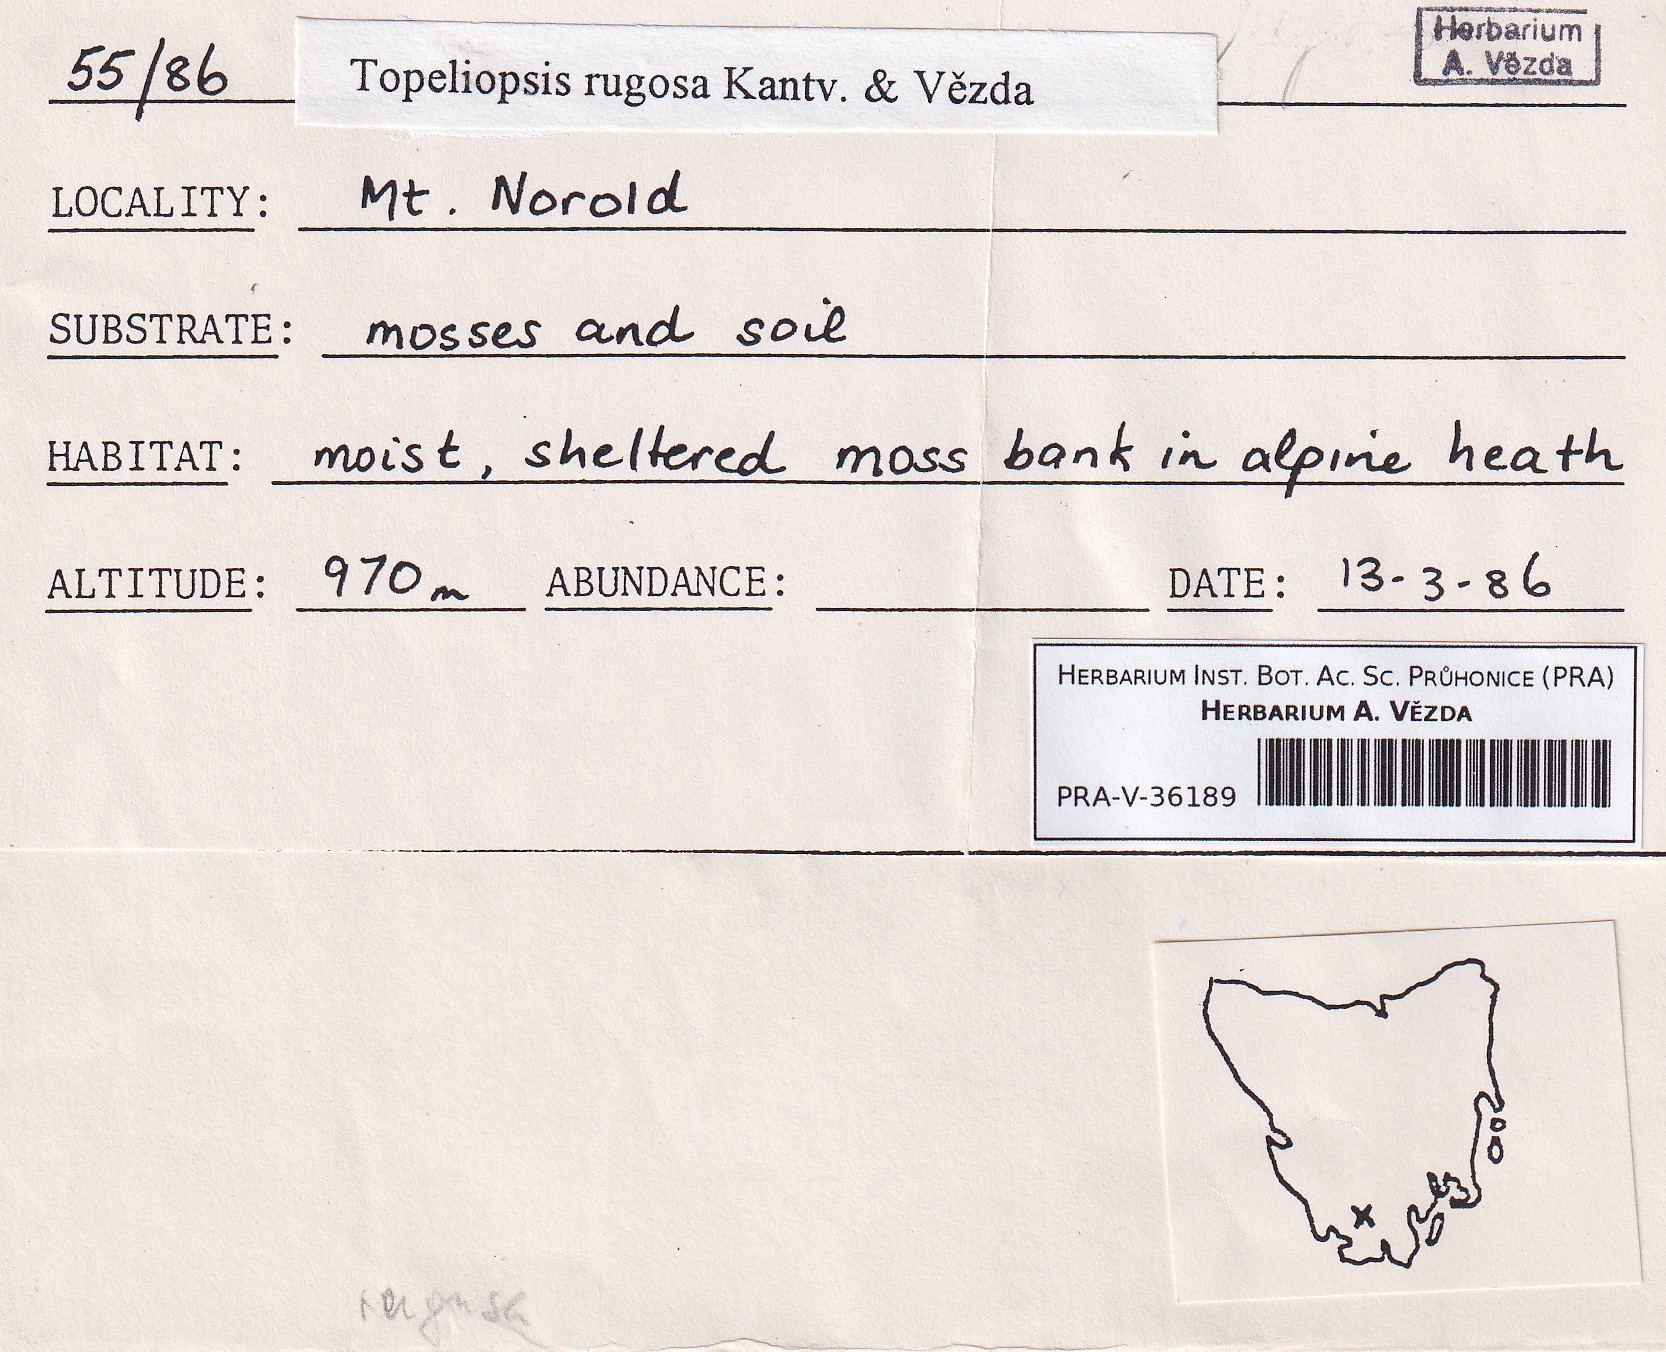 Herbarium
A. Vězda
55/86 Topeliopsis rugosa Kantv. & Vězda
LOCALITY: Mt. Norold
SUBSTRATE: mosses and soil
HABITAT: moist, sheltered moss bank in alpine heath
ALTITUDE: 970m ABUNDANCE: DATE: 13-3-86
HERBARIUM INST. BOT. AC. SC. PRŮHONICE (PRA)
HERBARIUM A. VĚZDA
PRA-V-36189
rugosa